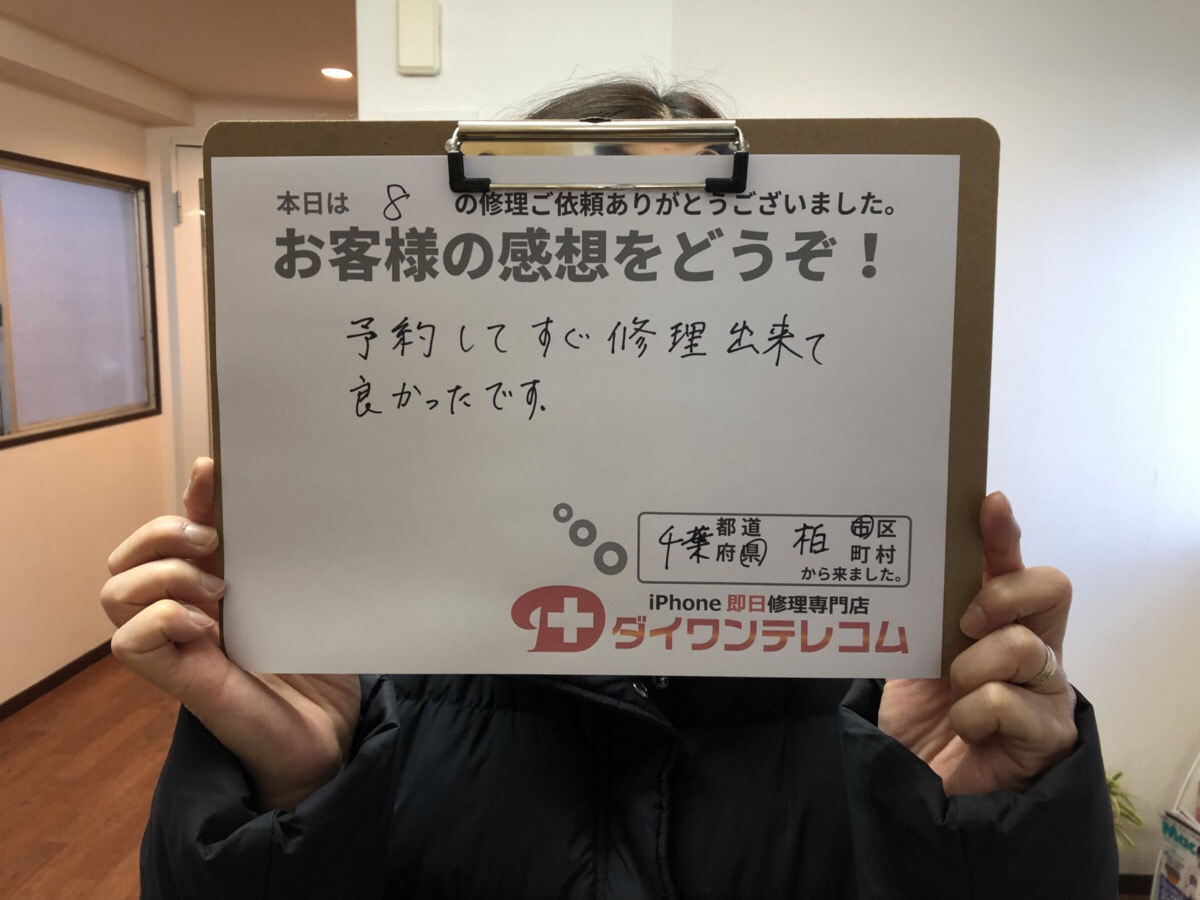 本日は 8 の修理ご依頼ありがとうございました。
お客様の感想をどうぞ！
予約してすぐ修理出来て
良かったです.
千葉 都道府県 柏 市区町村
から来ました。
iPhone 即日修理専門店
ダイワンテレコム
Mac